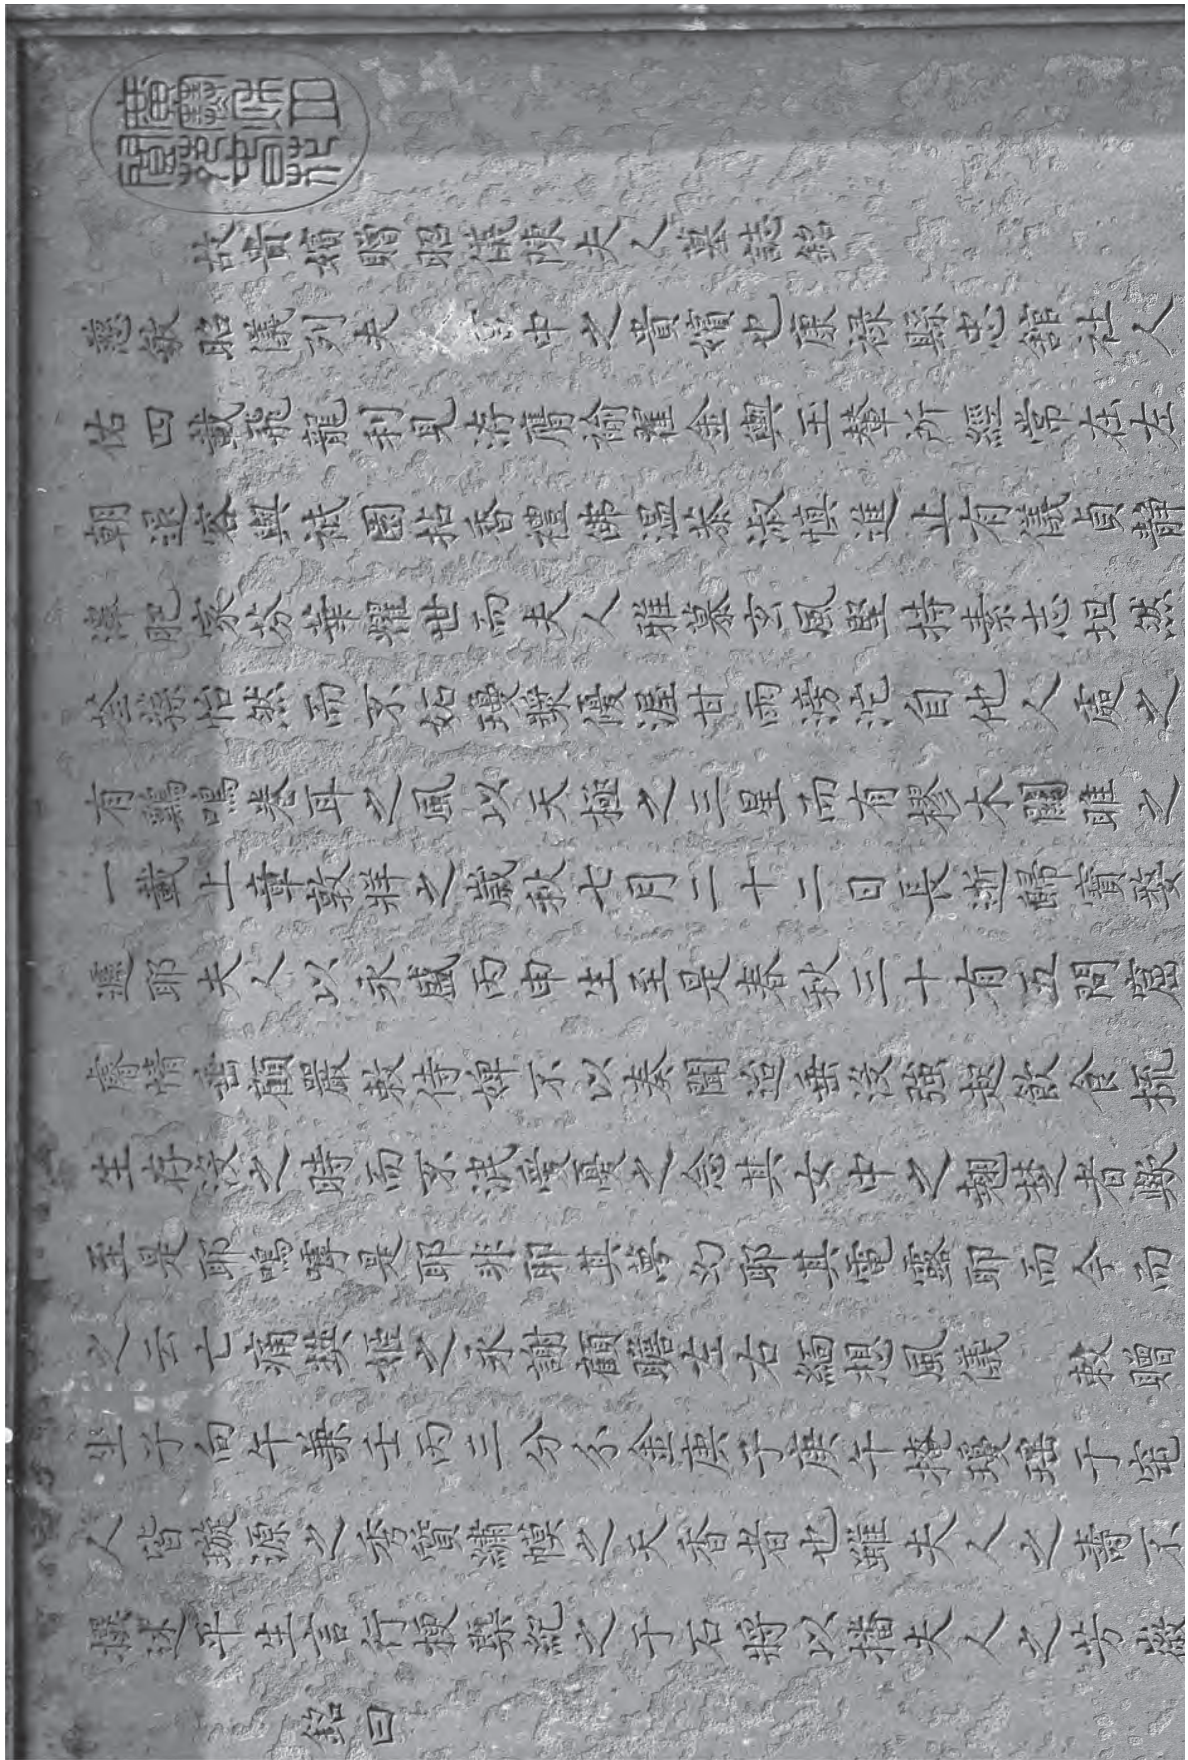 故貴嬪贈昭儀陳夫人墓誌銘
慈敏昭儀列夫宮中之貴嬪也原祿縣忠節社人
佑四載飛龍利見濟膺渝擢金輿玉輦所經常在左
朝退容與祇園拈香禮佛溫恭淑慎進止有儀貞靜
滓肥家紛華耀世而夫人雅慕玄風堅持素志坦然
恬然而不妬瓊漿優渥甘雨滂沱自他人處之
有雞鳴卷耳之風以天極之三星而有樛木關雎之
一載上章敦牂之歲秋七月二十二日長逝歸賓發
遽耶夫人以永盛丙申生至是春秋三十有五問窀
睿情眷顧嚴敕侍婢不以奏聞迨垂沒強扶飲食
生存沒之時而不泯愛憂之念其女中之翹楚者歟
至是耶嗚呼是耶非耶其夢幻耶其電露耶而今而
之云亡痛柩之永謝顧瞻左右緬想風儀 敕贈
坐子向午兼壬丙三分分金庚子庚午掩瓊瑤于窀
人皆璇源之秀質繡幙之天香者也雖夫人之壽不
摭述平生言行槩紀之于石將以播夫人之芳徽
銘曰